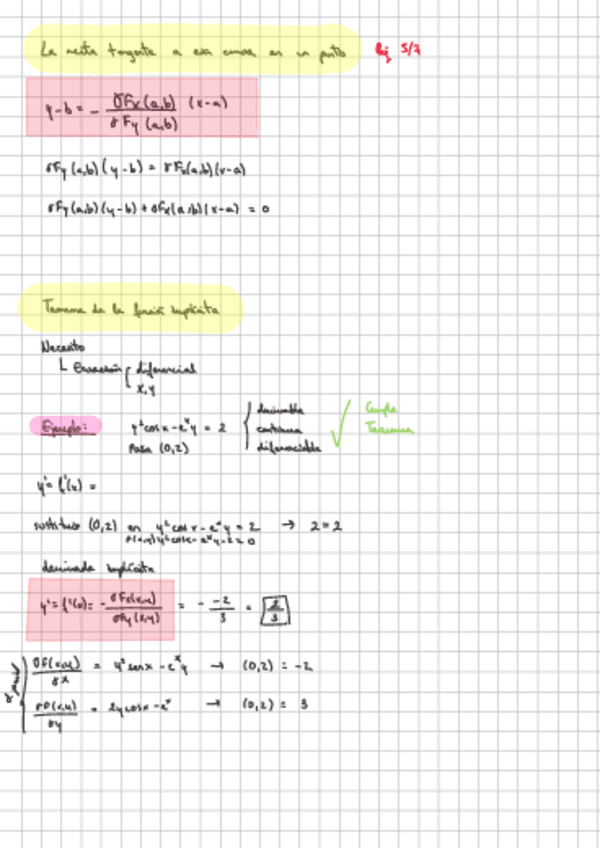 La recta tangente a esa curva en un punto Ej 5/7
y-b = - ∂Fx(a,b) / ∂Fy(a,b) (x-a)
∂Fy(a,b)(y-b) = ∂Fx(a,b)(x-a)
∂Fy(a,b)(y-b) + ∂Fx(a,b)(x-a) = 0
Teorema de la función implícita
Necesito
└ Ecuación { diferencial
x, y
Ejemplo: y²cosx - eˣy = 2 { derivable ✓ Cumple
continua Teorema
Pasa (0,2) diferenciable
y' = f'(x) =
sustituyo (0,2) en y²cosx - eˣy = 2 → 2=2
F(x,y) y²cosx - eˣy - 2 = 0
derivada implícita
y' = f'(x) = - ∂Fx(x,y) / ∂Fy(x,y) = - -2/3 = 2/3
∂F(x,y) / ∂x = y²senx - eˣy → (0,2) = -2
∂F(x,y) / ∂y = 2ycosx - eˣ → (0,2) = 3